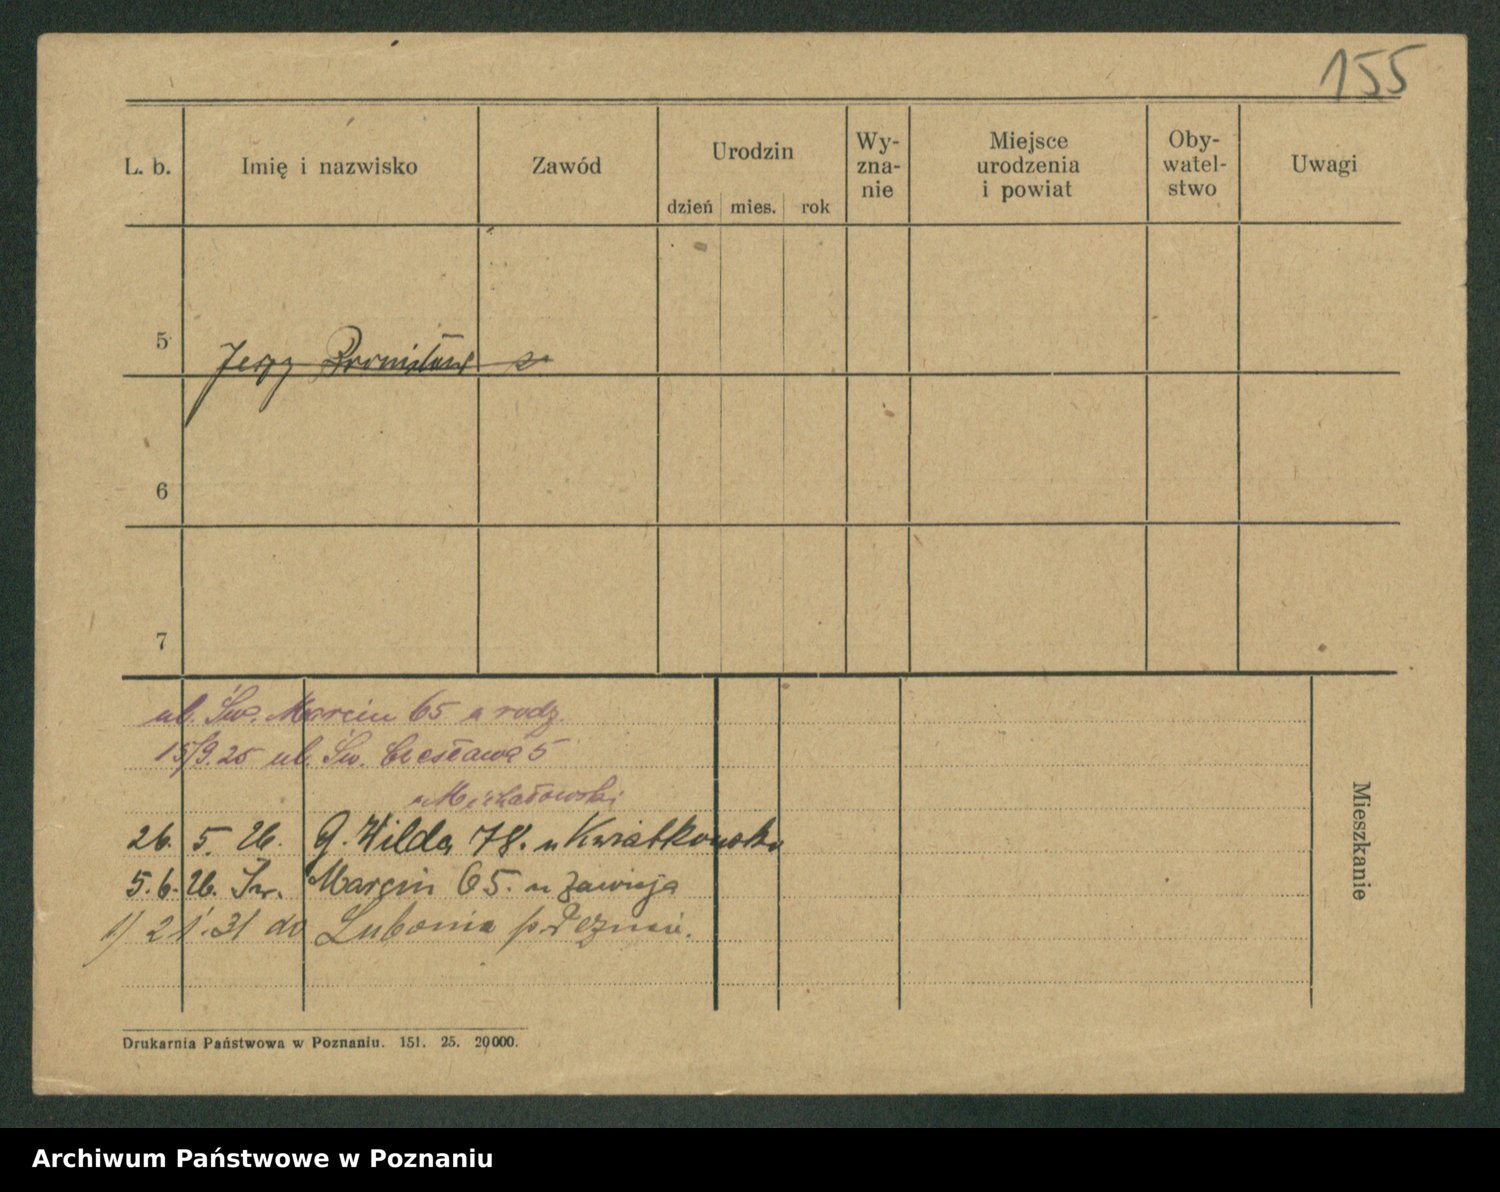 155
L. b. Imię i nazwisko Zawód Urodzin dzień mies. rok Wy-zna-nie Miejsce urodzenia i powiat Oby-watel-stwo Uwagi
5 Jerzy Bronisław
6
7
ul. Św. Marcin 65 u rodz.
15/9.25 ul. Św. Czesława 5
u Michałowski
26. 5. 26. G. Wilda 78. u Kwiatkowska
5. 6. 26. Św. Marcin 65. u Zawieja
21. 31 do Lubonia p. Poznań.
Mieszkanie
Drukarnia Państwowa w Poznaniu. 151. 25. 20000.
Archiwum Państwowe w Poznaniu